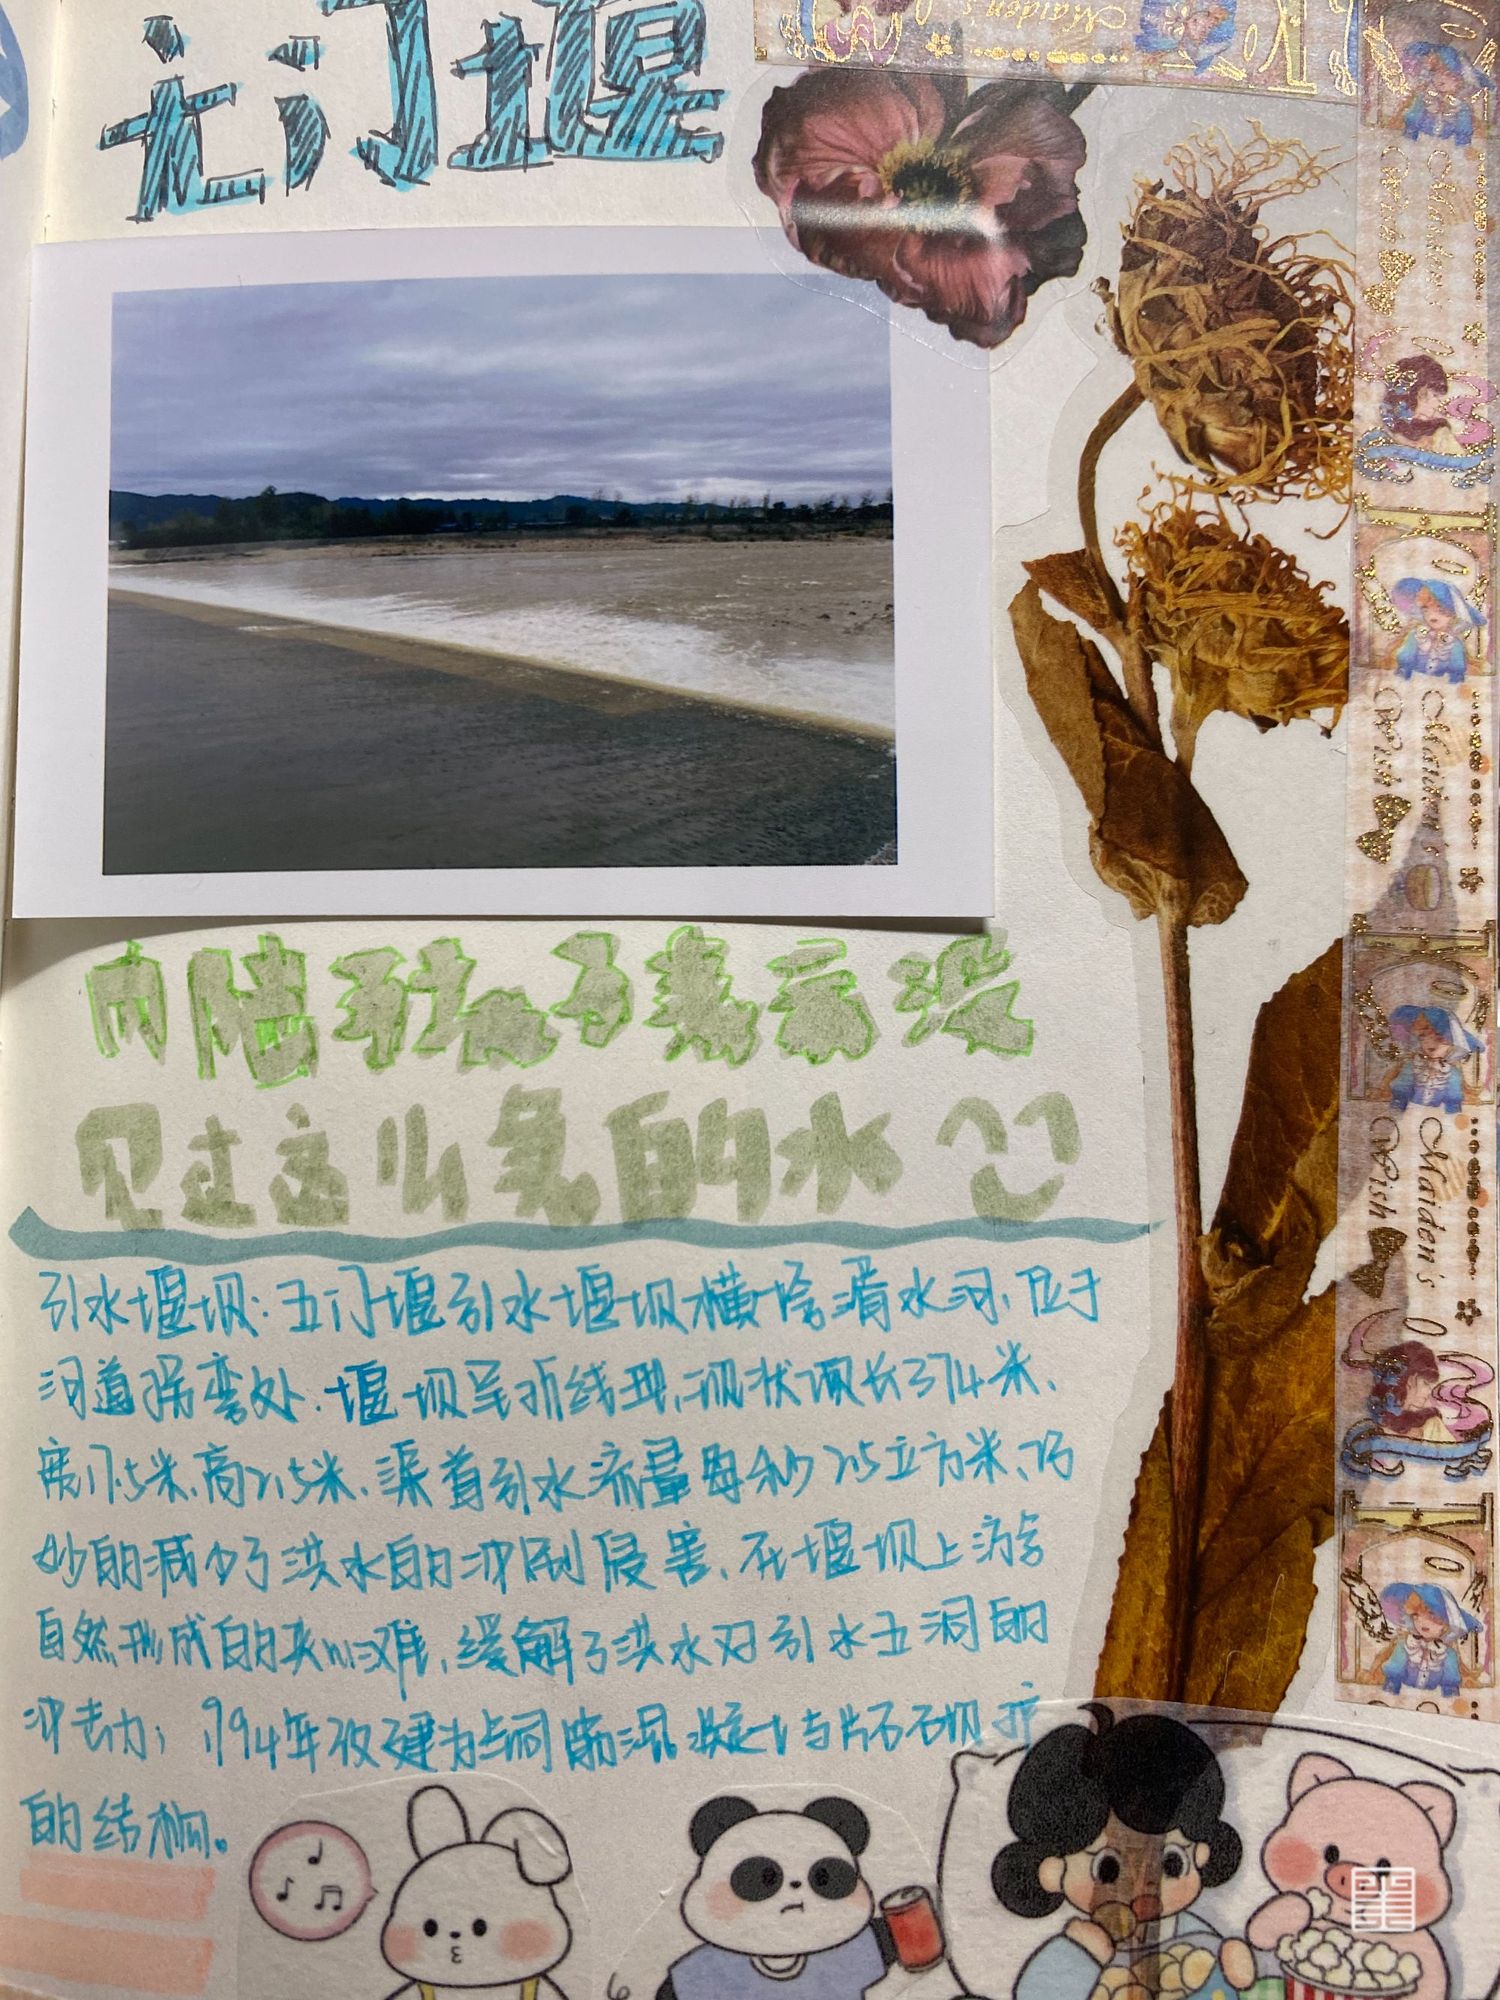 七门堰
内陆孩子表示没
见过这么多的水
引水堰坝：五门堰引水堰坝横跨湑水河、位于
河道拐弯处.堰坝呈折线型、现状坝长374米、
宽17.5米、高2.5米、渠首引水流量每秒25立方米、巧
妙的减少了洪水的冲刷侵害、在堰坝上游
自然形成的夹心滩、缓解了洪水对引水五洞的
冲击力；1994年改建为钢筋混凝土与片石石坝
的结构。
Maiden's
Wish
Maiden's
Wish
Maiden's
Wish